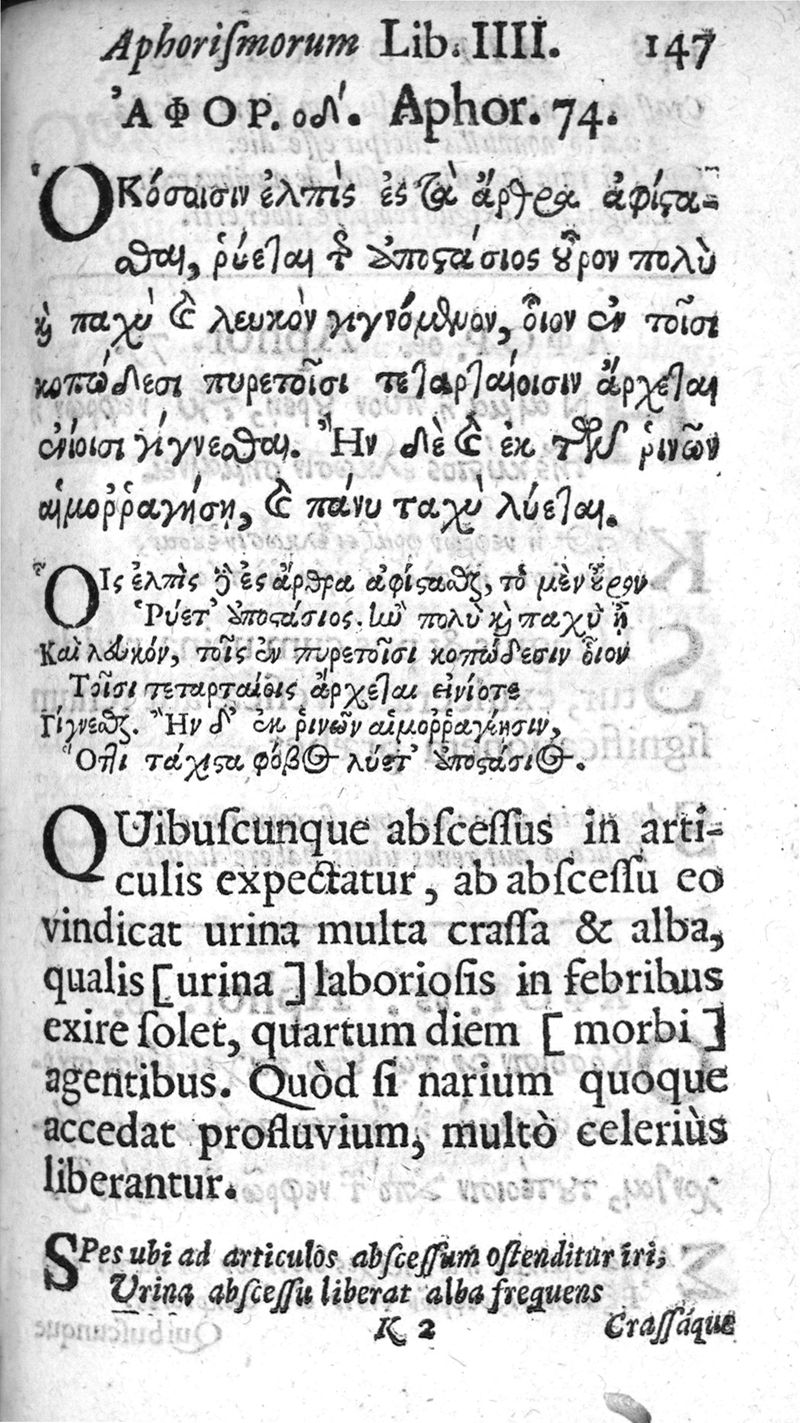 Aphoriſmorum Lib. IIII. 147
ἈΦΟΡ. οδ´. Aphor. 74.
ὉΚόσοισιν ἐλπὶς ἐς τὰ ἄρθρα ἀφίστα-
σθαι, ῥύεται τῆς ἀποστάσιος οὖρον πολὺ
καὶ παχὺ καὶ λευκὸν γιγνόμενον, οἷον ἐν τοῖσι
κοπώδεσι πυρετοῖσι τεταρταίοισιν ἄρχεται
ἐνίοισι γίγνεσθαι. Ἢν δὲ καὶ ἐκ τῶν ῥινῶν
αἱμοῤῥαγήσῃ, καὶ πάνυ ταχὺ λύεται.
ΟἿς ἐλπὶς ᾖ ἐς ἄρθρα ἀφίστασθαι, τὸ μὲν οὖρον
Ῥύετ' ἀποστάσιος, ἢν πολὺ καὶ παχὺ ᾖ
Καὶ λευκόν, τοῖς ἐν πυρετοῖσι κοπώδεσιν οἷον
Τοῖσι τεταρταίοις ἄρχεται ἐνίοτε
Γίγνεσθαι. Ἢν δ' ἐκ ῥινῶν αἱμοῤῥαγίησιν,
Ὅτι τάχιστα φόβος λύετ' ἀποστάσιος.
QUibuſcunque abſceſſus in arti-
culis expectatur, ab abſceſſu eo
vindicat urina multa craſſa & alba,
qualis [urina] laborioſis in febribus
exire ſolet, quartum diem [morbi]
agentibus. Quòd ſi narium quoque
accedat profluvium, multò celeriùs
liberantur.
SPes ubi ad articulos abſceſſum oſtenditur iri,
Urina abſceſſu liberat alba frequens
K 2 Craſſáque